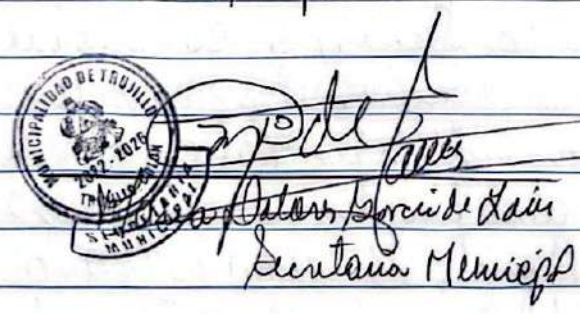 MUNICIPALIDAD DE TRUJILLO
2022-2026
TRUJILLO COLON
SECRETARIA
MUNICIPAL
Dolores Garcia de Lain
Secretaria Municipal